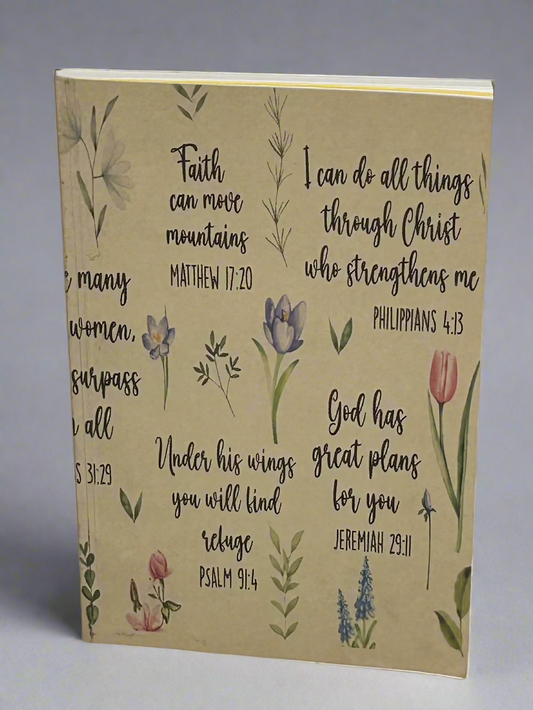 Faith
can move
mountains
MATTHEW 17:20
I can do all things
through Christ
who strengthens me
PHILIPPIANS 4:13
many
women,
surpass
all
31:29
Under his wings
you will find
refuge
PSALM 91:4
God has
great plans
for you
JEREMIAH 29:11